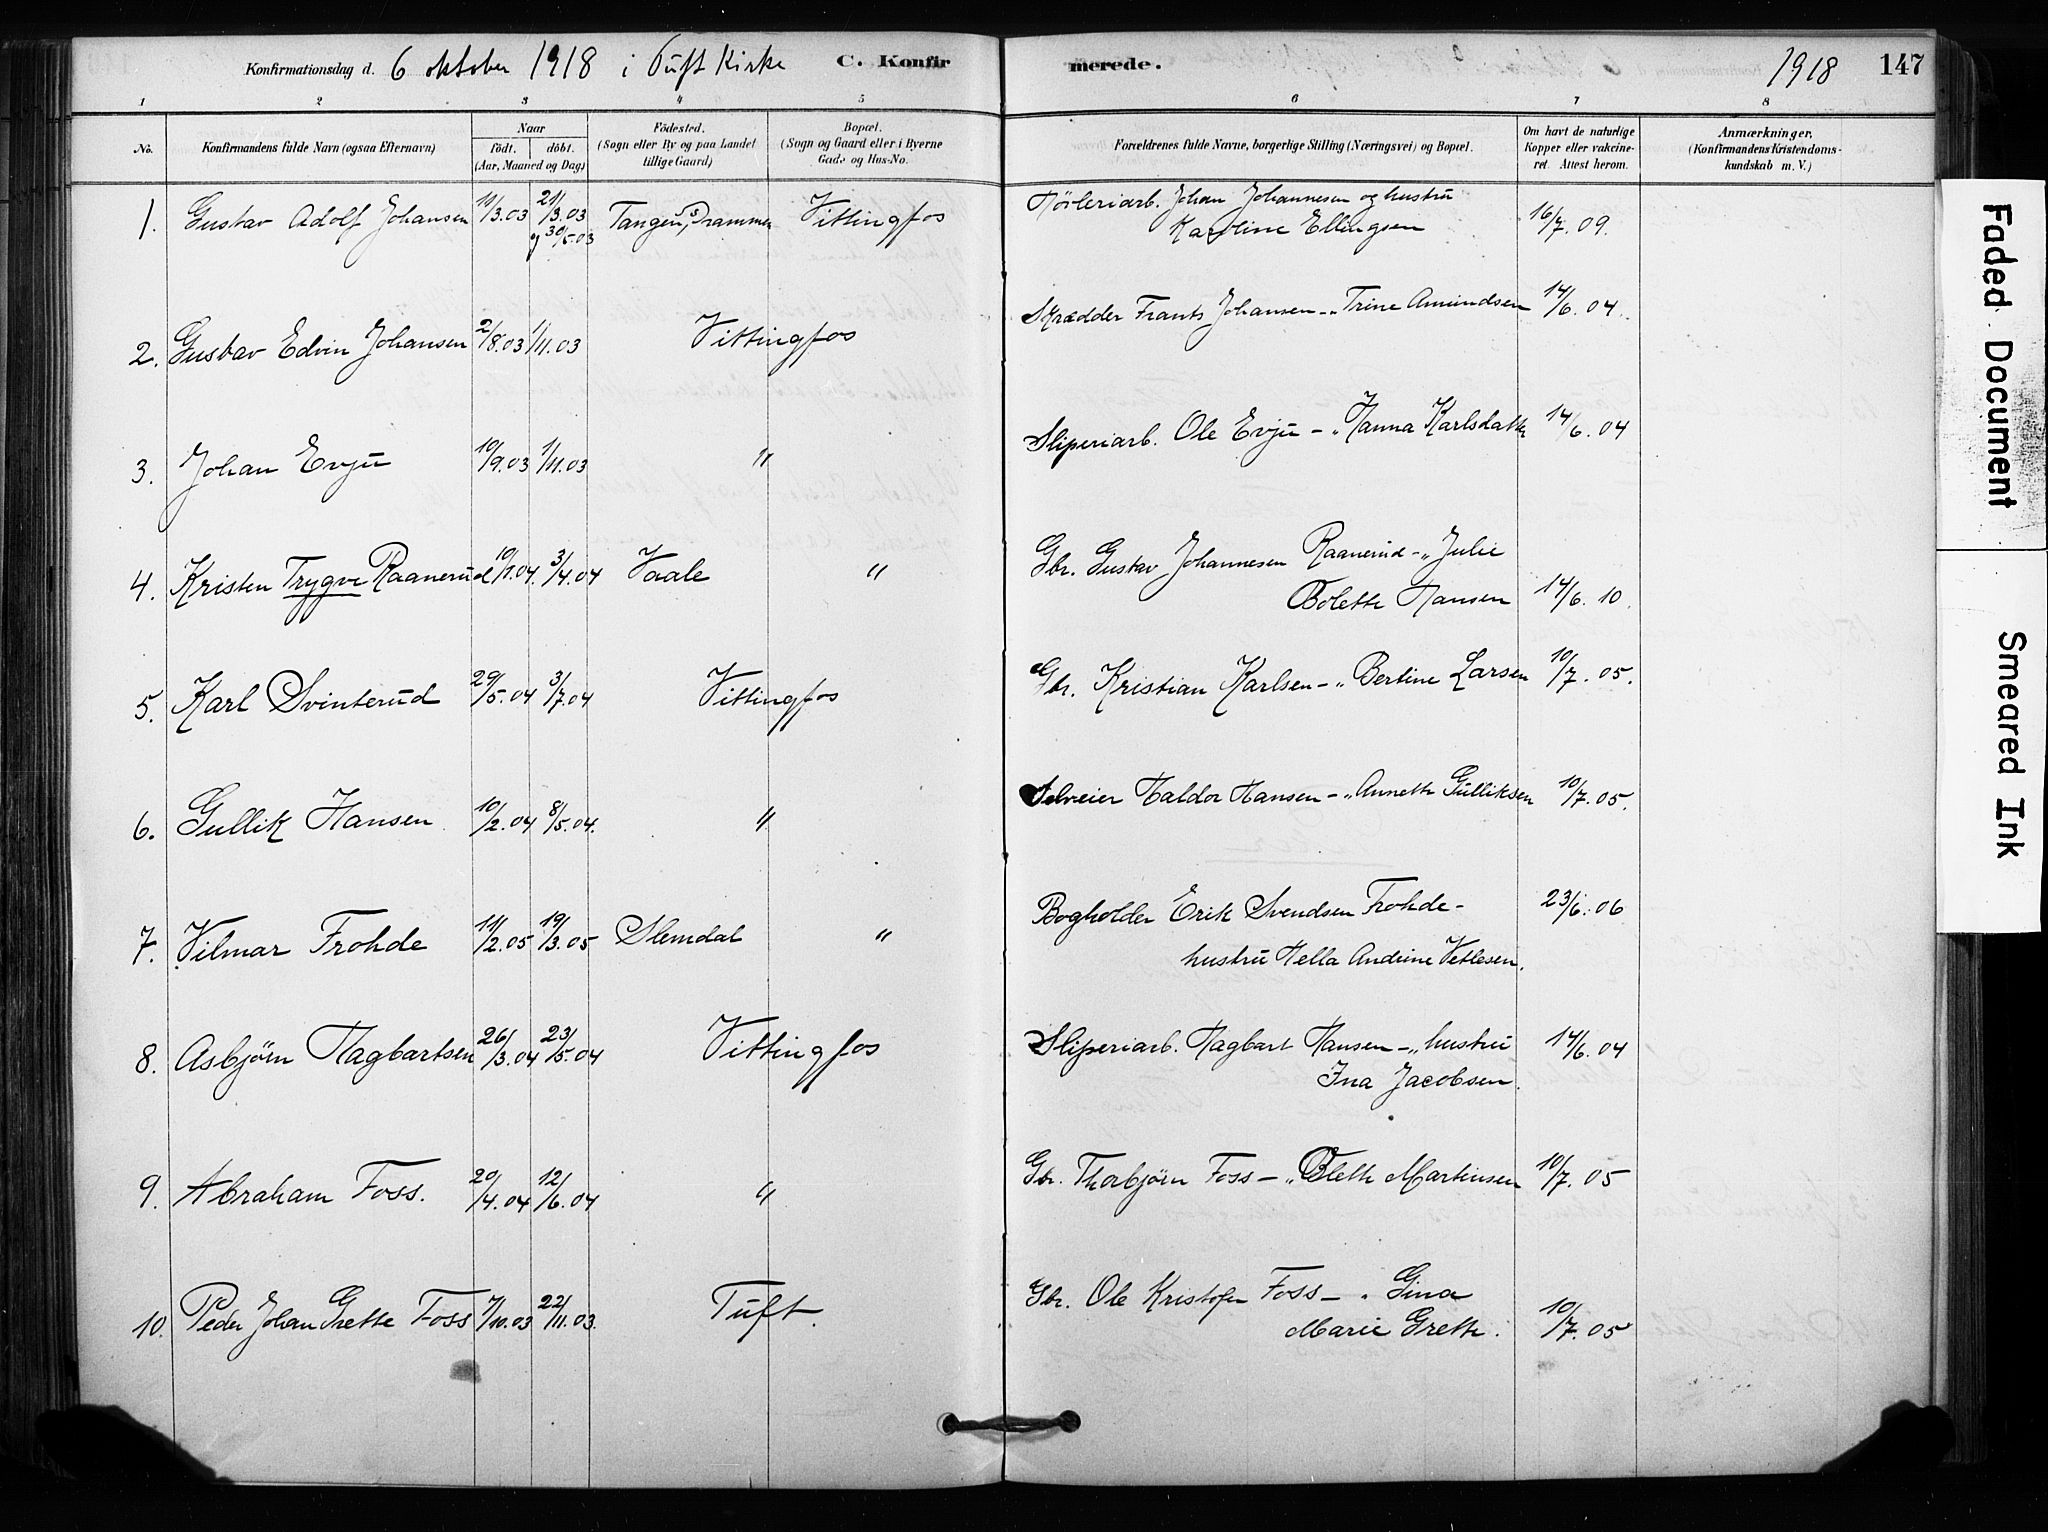 Konfirmationsdag d. 6 oktober 1918 i Tuft Kirke C. Konfirmerede. 1918 147
1 2 3 4 5 6 7 8
No. Konfirmandens fulde Navn (ogsaa Efternavn) Naar Födt. döbt. (Aar, Maaned og Dag) Födested. (Sogn eller By og paa Landet tillige Gaard) Bopæl. (Sogn og Gaard eller i Byerne Gade og Hus-No. Forældrenes fulde Navne, borgerlige Stilling (Næringsvei) og Bopæl. Om havt de naturlige Kopper eller vakcineret. Attest herom. Anmærkninger, (Konfirmandens Kristendomskundskab m. V.)
1. Gustav Adolf Johansen 11/3.03 21/3.03 og 30/5.03 Tangen, Drammen Vittingfos Johan Johannesen og hustru Karoline Ellingsen 16/7. 09.
2. Gustav Edvin Johansen 2/8.03 1/11.03 Vittingfos Skrædder Frants Johansen -„ Trine Amundsen 14/6. 04.
3. Johan Evju 10/9.03 1/11.03 " Sliperiarb. Ole Evju -„ Hanna Karlsdatter 14/6. 04
4. Kristen Trygve Raanerud 10/1.04. 3/4.04 Vaale " Gbr. Gustav Johannesen Raanerud -„ Julie
Bolette Hansen 14/6. 10.
5. Karl Svinterud 29/5.04 3/7.04 Vittingfos Gbr. Kristian Karlsen -„ Bertine Larsen 10/7. 05.
6. Gullik Hansen 10/2.04 8/5.04. " Selveier Haldor Hansen -„ Annette Gulliksen 10/7. 05.
7. Vilmar Frohde 11/2.05 19/3.05 Slemdal " Bogholder Erik Svendsen Frohde - 23/6. 06
hustru Hella Andrine Vetlesen.
8. Asbjörn Hagbartsen 26/3.04 23/5.04 Vittingfos Sliperiarb. Hagbart Hansen -„ hustru 14/6. 04
Ina Jacobsen.
9. Abraham Foss. 20/4.04 12/6.04 " Gbr. Thorbjörn Foss -„ Martinsen 10/7. 05
10. Peder Johan Grette Foss 7/10.03 22/11.03. Tuft. Gbr. Ole Kristofer Foss - „ Gina
Marie Grette. 10/7. 05
Faded Document
Smeared Ink